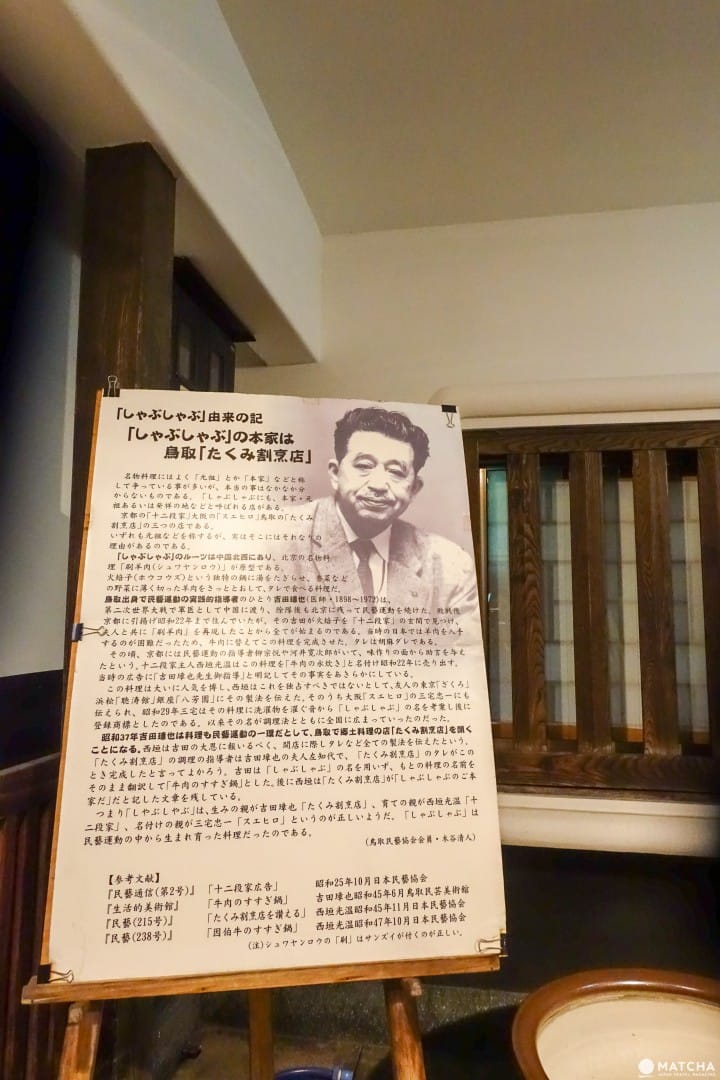 「しゃぶしゃぶ」由来の記
「しゃぶしゃぶ」の本家は
鳥取「たくみ割烹店」
名物料理にはよく「元祖」とか「本家」などと称
して争っている事が多いが、本当の事はなかなか分
からないものである。「しゃぶしゃぶにも、本家・元
祖あるいは発祥の地などと呼ばれる店がある。
京都の「十二段家」大阪の「スエヒロ」鳥取の「たくみ
割烹店」の三つの店である。
いずれも元祖などを称するが、実はそこにはそれなりの
理由があるのである。
「しゃぶしゃぶ」のルーツは中国北西にあり、北京の名物料
理「刷羊肉(シュワヤンロウ)」が原型である。
火焔子(ホウコウズ)という独特の鍋に湯をたぎらせ、春菜など
の野菜に薄く切った羊肉をさっととおして、タレで食べる料理だ。
鳥取出身で民藝運動の実践的指導者のひとり吉田璋也(医師・1898~1972)は、
第二次世界大戦で軍医として中国に渡り、除隊後も北京に残って民藝運動を続けた。敗戦後
京都に引揚げ昭和22年まで住んでいたが、その吉田が火焔子を「十二段家」の玄関で見つけ、
友人と共に「刷羊肉」を再現したことから全てが始まるのである。当時の日本では羊肉を入手
するのが困難だったため、牛肉に替えてこの料理を完成させた。タレは胡麻ダレである。
その頃、京都には民藝運動の指導者柳宗悦や河井寛次郎がいて、味作りの面から助言を与え
たという。十二段家主人西垣光温はこの料理を「牛肉の水炊き」と名付け昭和22年に売り出す。
当時の広告に「吉田璋也先生御指導」と明記してその事実をあきらかにしている。
この料理は大いに人気を博し、西垣はこれを独占すべきではないとして、友人の東京「ざくろ」
浜松「聴涛館」銀座「八芳園」にその製法を伝えた。そのうち大阪「スエヒロ」の三宅忠一にも
伝えられ、昭和29年三宅はその料理に洗濯物を濯ぐ音から「しゃぶしゃぶ」の名を考案し後に
登録商標としたのである。以来その名が調理法とともに全国に広まっていったのだった。
昭和37年吉田璋也は料理も民藝運動の一環だとして、鳥取で郷土料理の店「たくみ割烹店」を開く
ことになる。西垣は吉田の大恩に報いるべく、開店に際しタレなど全ての製法を伝えたという。
「たくみ割烹店」の調理の指導者は吉田璋也の夫人左知代で、「たくみ割烹店」のタレがこの
とき完成したと言ってよかろう。吉田は「しゃぶしゃぶ」の名を用いず、もとの料理の名前を
そのまま翻訳して「牛肉のすすぎ鍋」とした。後に西垣は「たくみ割烹店」が「しゃぶしゃぶのご本
家だ」だと記した文章を残している。
つまり「しゃぶしゃぶ」は、生みの親が吉田璋也「たくみ割烹店」、育ての親が西垣光温「十
二段家」、名付けの親が三宅忠一「スエヒロ」というのが正しいようだ。「しゃぶしゃぶ」は
民藝運動の中から生まれ育った料理だったのである。
(鳥取民藝協会会員・木谷清人)
【参考文献】
『民藝通信(第2号)』「十二段家広告」 昭和25年10月日本民藝協会
『生活的美術館』「牛肉のすすぎ鍋」 吉田璋也昭和45年6月鳥取民芸美術館
『民藝(215号)』「たくみ割烹店を讃える」 西垣光温昭和45年11月日本民藝協会
『民藝(238号)』「因伯牛のすすぎ鍋」 西垣光温昭和47年10月日本民藝協会
(注)シュワヤンロウの「刷」はサンズイが付くのが正しい。
MATCHA
JAPAN TRAVEL MAGAZINE